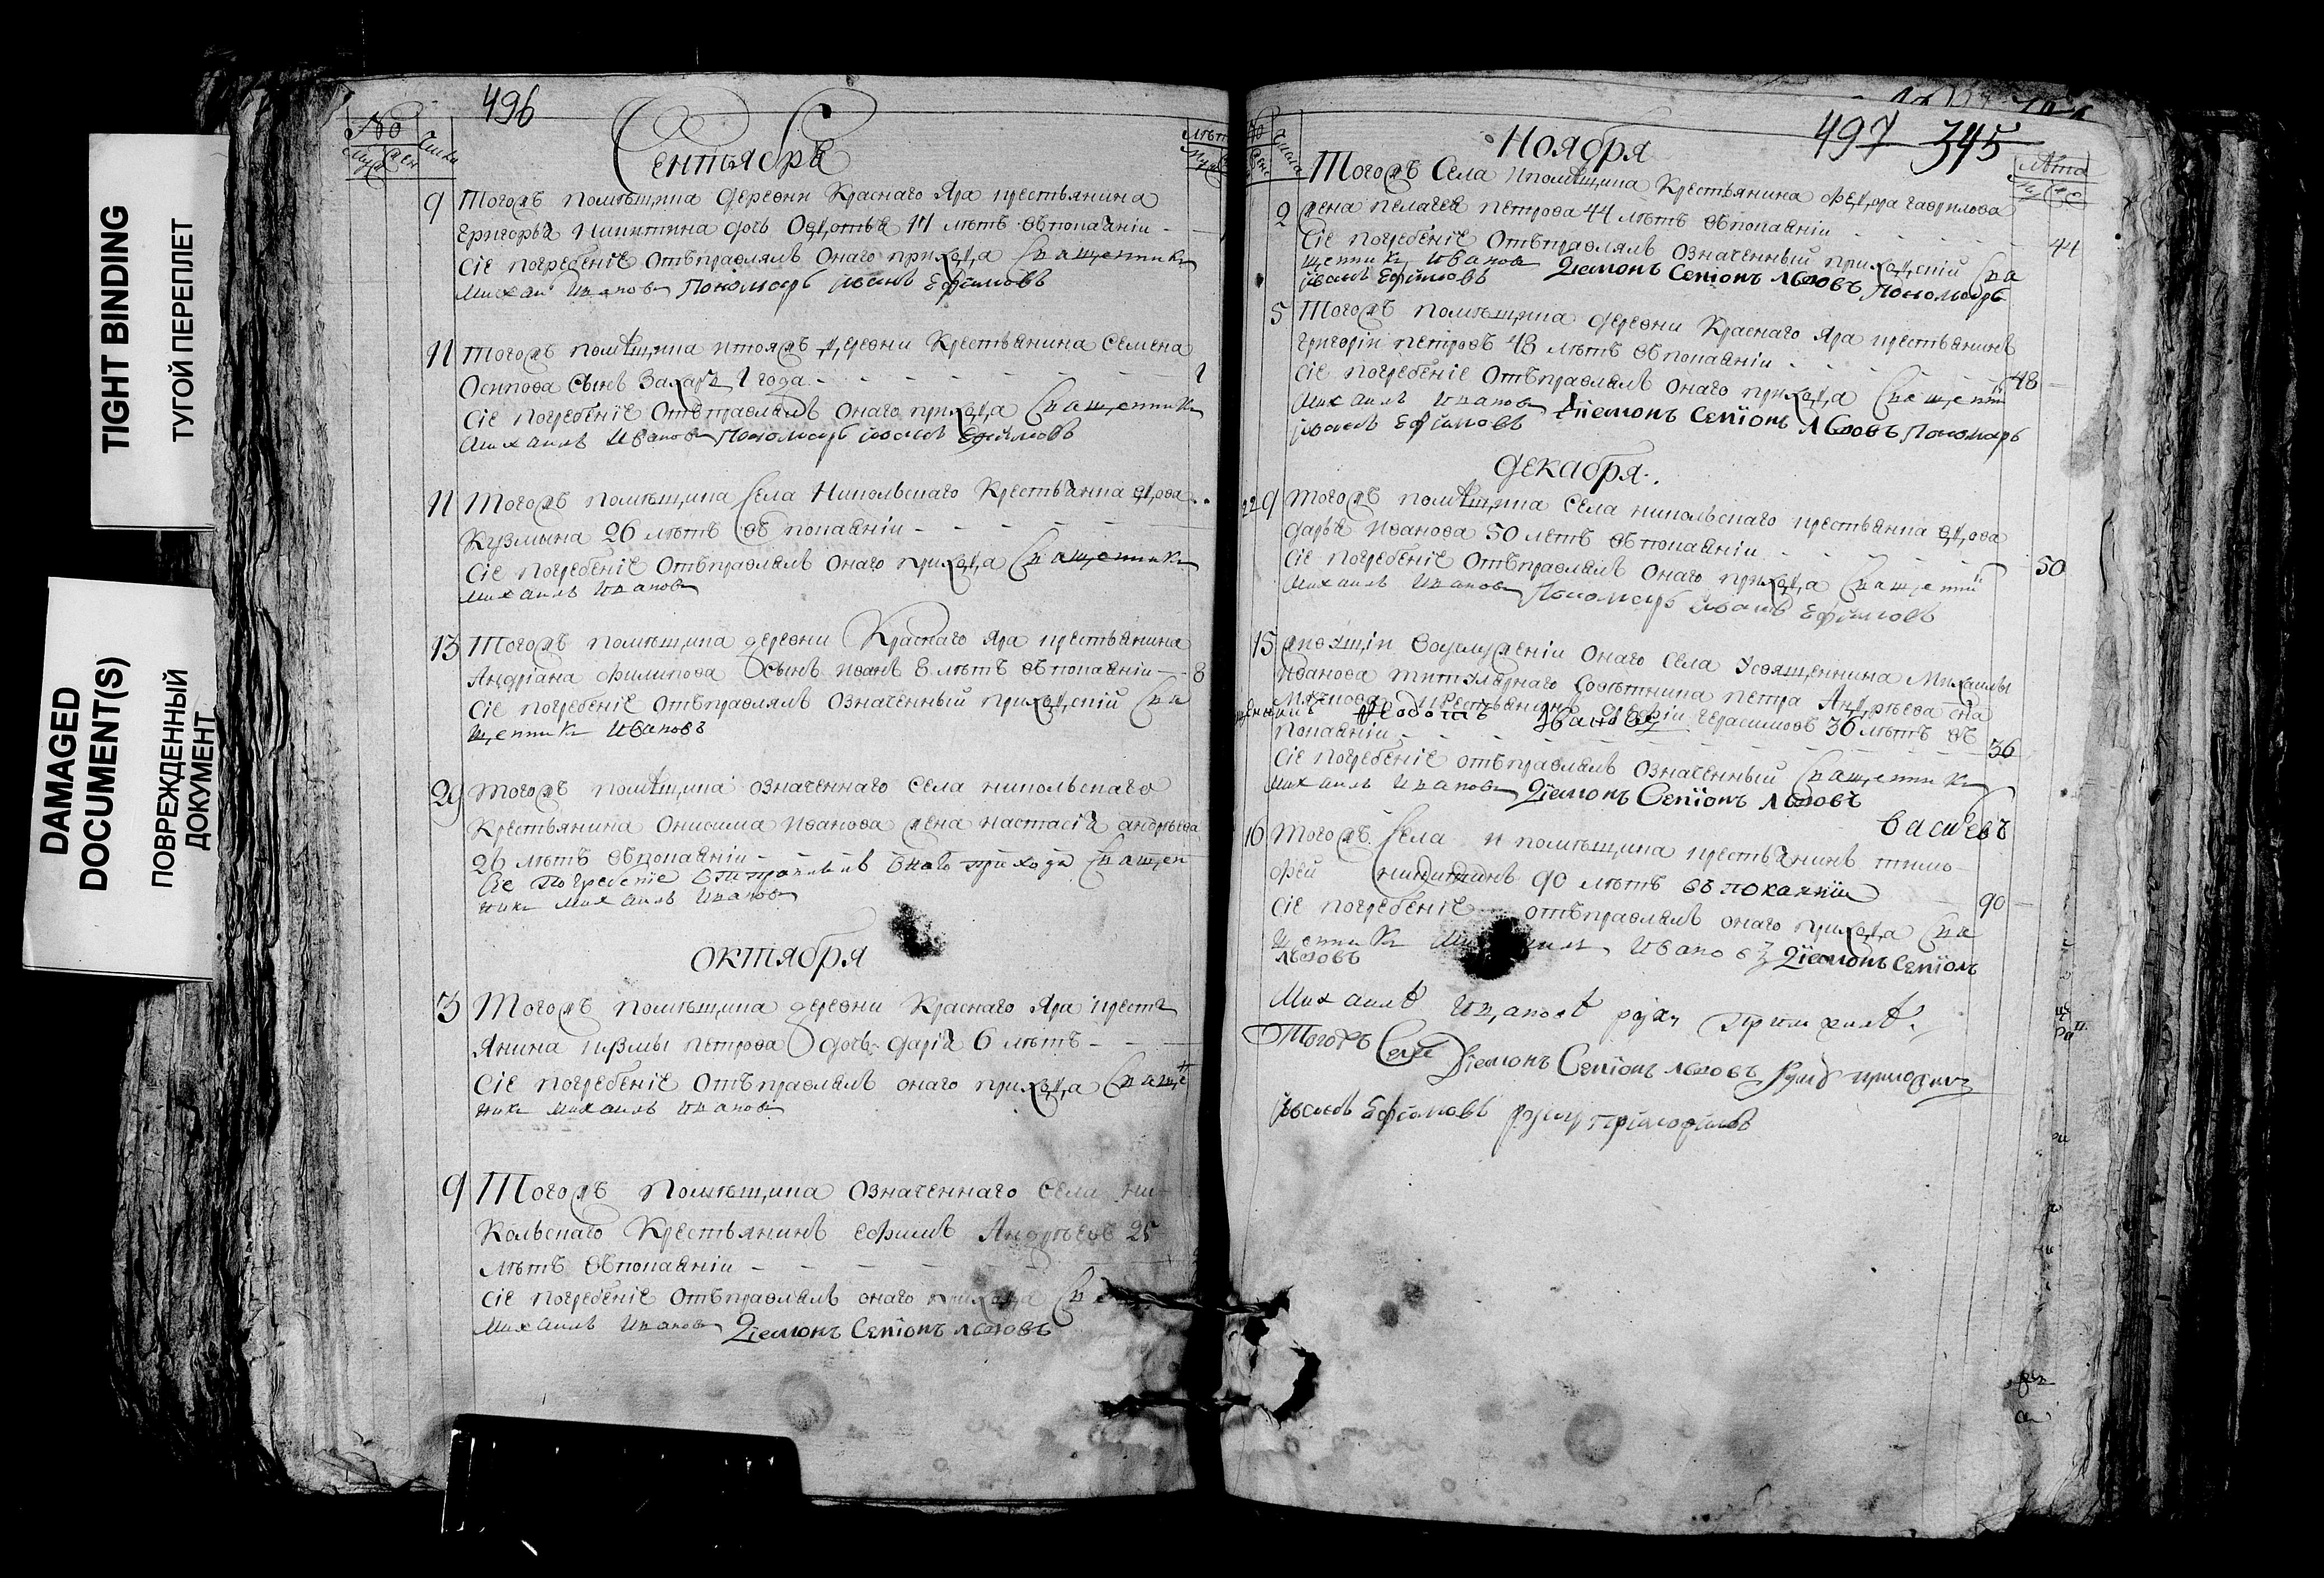 TIGHT BINDING
ТУГОЙ ПЕРЕПЛЕТ
DAMAGED
DOCUMENT(S)
ПОВРЕЖДЕННЫЙ
ДОКУМЕНТ
496
№ числа
Сентября
лета
9 Тогожъ помѣщика деревни Краснаго Яра крестьянина
Григорья Никитина дочь Ѳедотья 11 лѣтъ въ покаяніи
Сіе погребеніе отъправлялъ онаго прихода Священникъ
Михаилъ Ивановъ Пономарь Иванъ Ефимовъ
11 Тогожъ помѣщика и тояжъ деревни Крестьянина Семена
Осипова сынъ Захаръ 1 года 1
Сіе погребеніе отъправлялъ онаго прихода Священникъ
Михаилъ Ивановъ Пономарь Иванъ Ефимовъ
11 Тогожъ помѣщика села Никольскаго Крестьянка вдова
Кузмина 26 лѣтъ въ покаяніи
Сіе погребеніе отъправлялъ онаго прихода Священникъ
Михаилъ Ивановъ
13 Тогожъ помѣщика деревни Краснаго Яра крестьянина
Андріана Филипова сынъ Иванъ 8 лѣтъ въ покаяніи 8
Сіе погребеніе отъправлялъ означенный приходскій Свя
щенникъ Ивановъ
29 Тогожъ помѣщика означеннаго села Никольскаго
Крестьянина Онисима Иванова жена Настасія Андрѣева
26 лѣтъ въ покаяніи
Сіе погребеніе отправлялъ онаго прихода Священ
никъ Михаилъ Ивановъ
Октября
3 Тогожъ помѣщика деревни Краснаго Яра кресть
янина Кузмы Петрова дочь Дарія 6 лѣтъ
Сіе погребеніе отъправлялъ онаго прихода Священ
никъ Михаилъ Ивановъ
9 Тогожъ помѣщика означеннаго села Ни
кольскаго Крестьянинъ Ефимъ Андрѣевъ 25
лѣтъ въ покаяніи
Сіе погребеніе отъправлялъ онаго прихода
Михаилъ Ивановъ Діяконъ Семіонъ Львовъ
497 345
Ноября
лѣта
Тогожъ села и помѣщика Крестьянина Федора Гаврилова
2 жена Пелагея Петрова 44 лѣтъ въ покаяніи 44
Сіе погребеніе отъправлялъ означенный приходскій Свя
щенникъ Ивановъ Діяконъ Семіонъ Львовъ Пономарь
Иванъ Ефимовъ
5 Тогожъ помѣщика деревни Краснаго Яра крестьянинъ
Григорій Петровъ 48 лѣтъ въ покаяніи 48
Сіе погребеніе отъправлялъ онаго прихода Священникъ
Михаилъ Ивановъ Діяконъ Семіонъ Львовъ Пономарь
Иванъ Ефимовъ
Декабря
22 9 Тогожъ помѣщика села Никольскаго крестьянка вдова
Дарья Иванова 50 лѣтъ въ покаяніи 50
Сіе погребеніе отъправлялъ онаго прихода Священникъ
Михаилъ Ивановъ Пономарь Иванъ Ефимовъ
15 живущій въ услуженіи онаго села у священника Михаилы
Иванова титулярнаго совѣтника Петра Андрѣева сна
крестьянинъ Герасимовъ 36 лѣтъ въ
покаяніи 36
Сіе погребеніе отъправлялъ означенный Священникъ
Михаилъ Ивановъ Діяконъ Семіонъ Львовъ
16 Тогожъ села и помѣщика крестьянинъ Тимо
фей Никитинъ 90 лѣтъ въ покаяніи 90
Сіе погребеніе отъправлялъ онаго прихода Свя
щенникъ Михаилъ Ивановъ Діяконъ Семіонъ
Львовъ
Михаилъ Ивановъ руку приложилъ
Тогожъ села Діяконъ Семіонъ Львовъ руку приложилъ
Иванъ Ефимовъ руку приложилъ